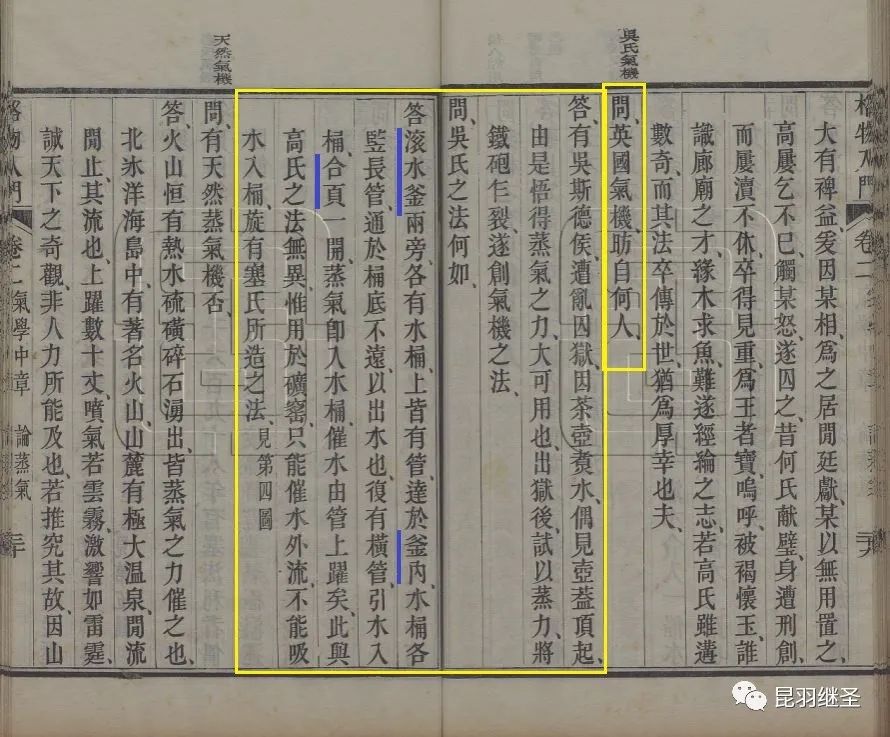 格物入門 卷二
大有碑益、爰因某相爲之居閒廷獻、某以無用置之、
高屢乞不已、觸某怒、遂囚之、昔何氏献璧、身遭刑創、
而屢瀆不休、卒得見重、爲王者寶、嗚呼、被褐懷玉、誰
識廊廟之才、緣木求魚、難遂經綸之志、若高氏雖遘
數奇、而其法卒傳於世、猶爲厚幸也夫、
吳氏氣機
問、英國氣機、昉自何人、
答、有吳斯德侯、遭亂囚獄、因茶壺煑水、偶見壺葢頂起、
由是悟得蒸氣之力、大可用也、出獄後、試以蒸力、將
鐵砲乍裂、遂創氣機之法、
問、吳氏之法何如、
答、滾水釜兩旁、各有水桶、上皆有管、達於釜內、水桶各
監長管、通於桶底不遠、以出水也、復有橫管、引水入
桶、合頁一開、蒸氣卽入水桶、催水由管上躍矣、此與
高氏之法無異、惟用於礦窰、只能催水外流、不能吸
水入桶、旋有塞氏所造之法、見第四圖
天然氣機
問、有天然蒸氣機否、
答、火山恒有熱水硫磺碎石湧出、皆蒸氣之力催之也、
北氷洋海島中、有著名火山、山麓有極大溫泉、閒流
閒止、其流也、上躍數十丈、噴氣若雲霧、激響如雷霆、
誠天下之奇觀、非人力所能及也、若推究其故、因山
格物入門 卷二 氣學中章 論蒸氣
昆羽继圣